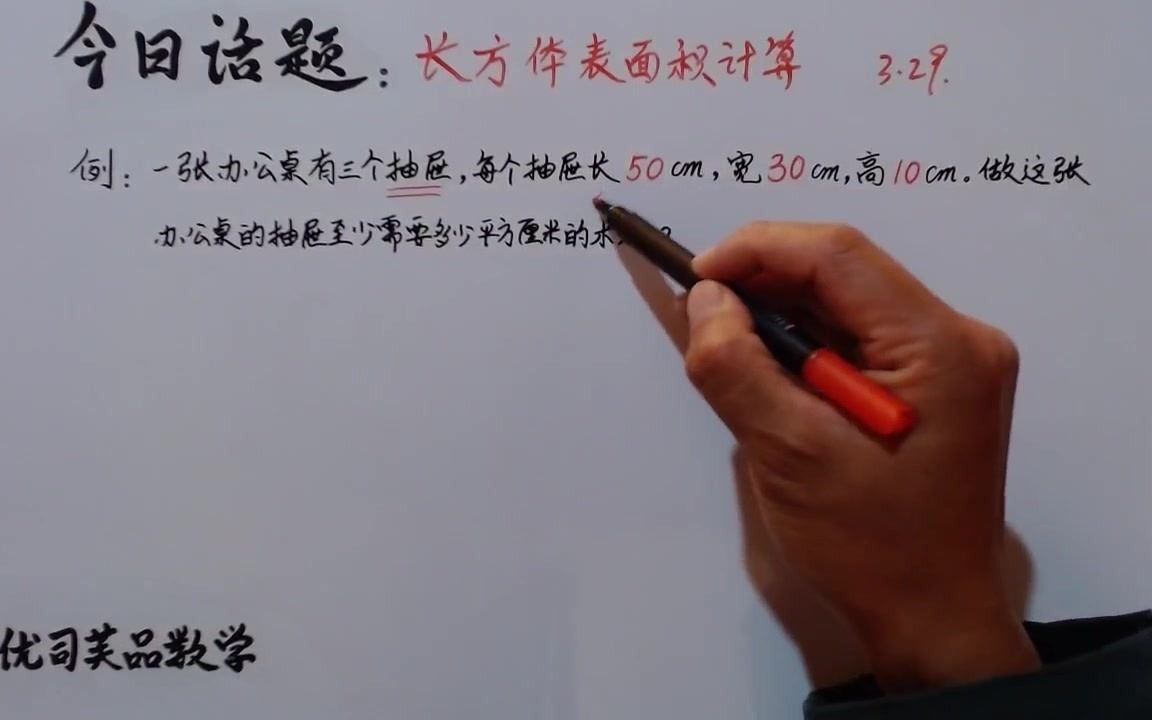 今日话题：长方体表面积计算 3.29.
例：一张办公桌有三个抽屉，每个抽屉长50cm，宽30cm，高10cm。做这张
办公桌的抽屉至少需要多少平方厘米的木
优司芙品数学